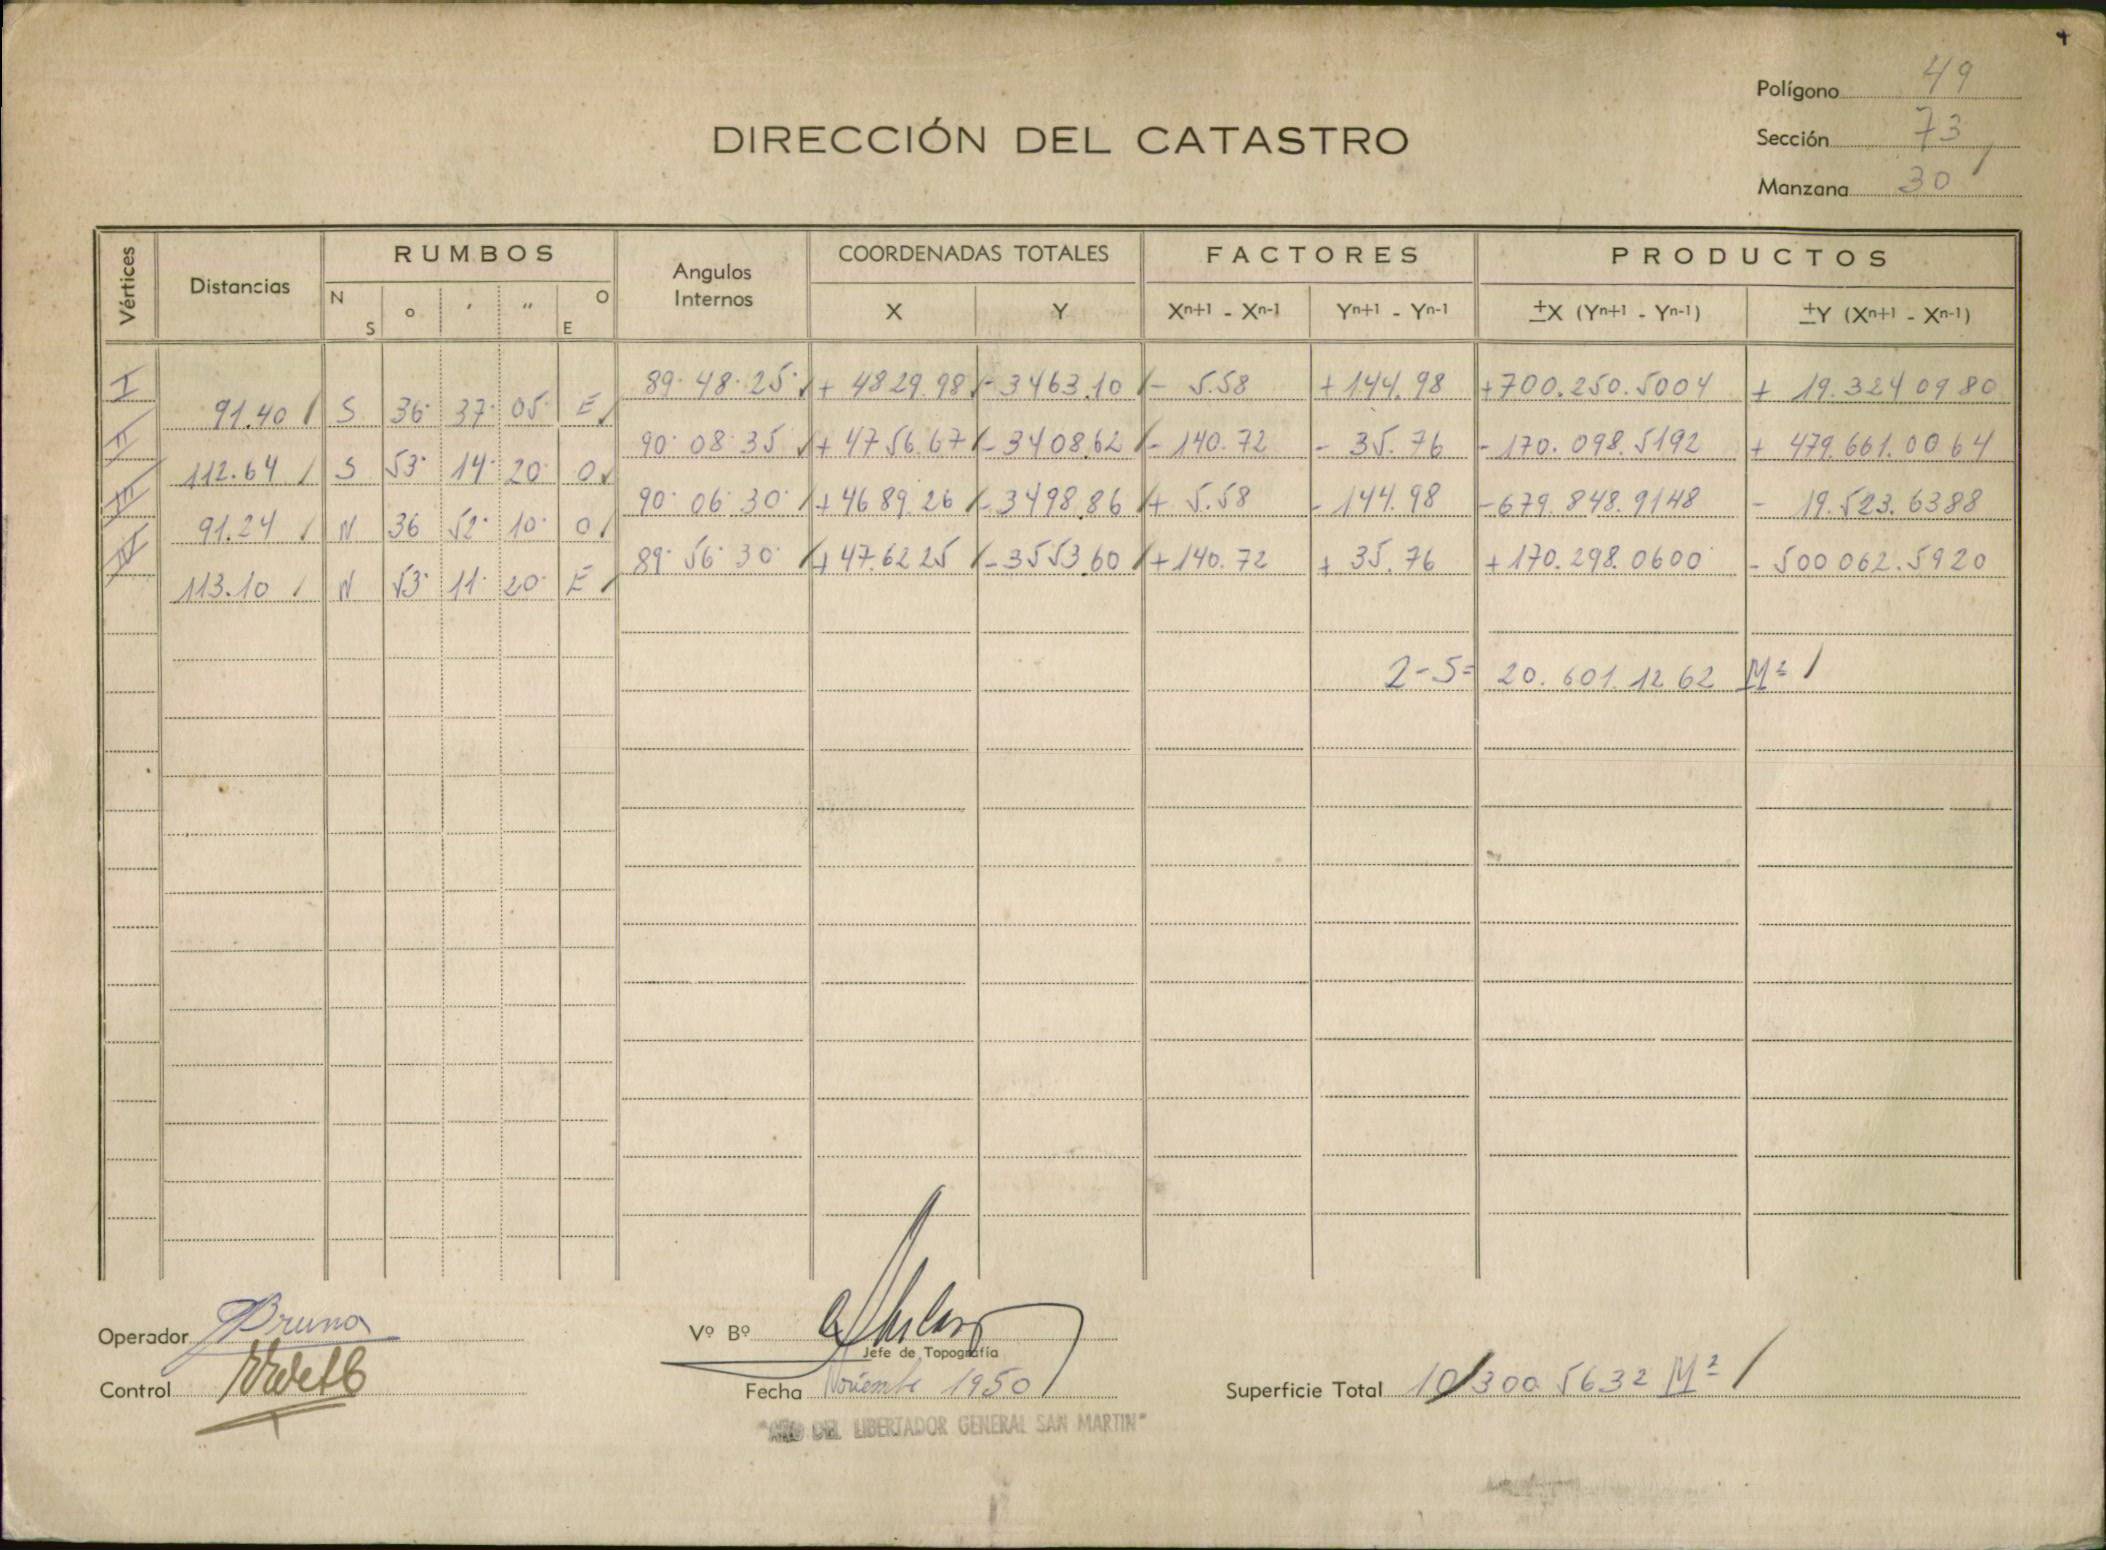 Polígono 49
DIRECCIÓN DEL CATASTRO
Sección 73
Manzana 30
Vértices Distancias RUMBOS Angulos Internos COORDENADAS TOTALES FACTORES PRODUCTOS
N S ° ' " O E X Y Xn+1 - Xn-1 Yn+1 - Yn-1 ±X (Yn+1 - Yn-1) ±Y (Xn+1 - Xn-1)
I 89° 48' 25" + 4829.98 - 3463.10 - 5.58 + 144.98 +700.250.5004 + 19.324 0980
91.40 S 36° 37' 05" E
II 90° 08' 35 + 4756.67 - 3408.62 - 140.72 - 35.76 - 170.098.5192 + 479.661.0064
112.64 S 53° 14' 20" O
III 90° 06' 30" + 4689.26 - 3498.86 + 5.58 - 144.98 - 679.848.9148 - 19.523.6388
91.24 N 36 52' 10" O
IV 89° 56' 30" + 47.62 25 - 3553.60 + 140.72 + 35.76 + 170.298.0600 - 500 062.5920
113.10 N 53° 11' 20" E
2-S= 20.601.1262 M²
Operador Bruna
Vº Bº
Jefe de Topografía
Control
Fecha Noviembre 1950
Superficie Total 10300 5632 M²
"AÑO DEL LIBERTADOR GENERAL SAN MARTIN"